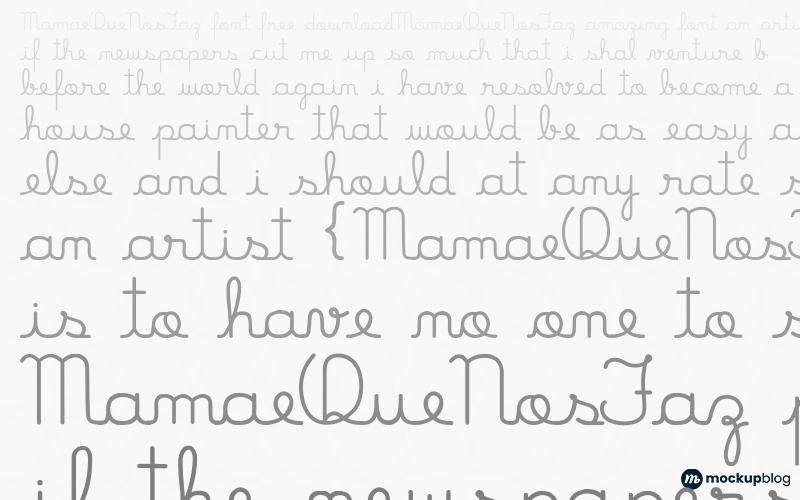 MamaeQueNosFaz font free downloadMamaeQueNosFaz amazing font an artis
if the newspapers cut me up so much that i shal venture b
before the world again i have resolved to become a
house painter that would be as easy a
else and i should at any rate s
an artist {MamaeQueNosF
is to have no one to s
MamaeQueNosFaz p
if the newspapers
mockupblog